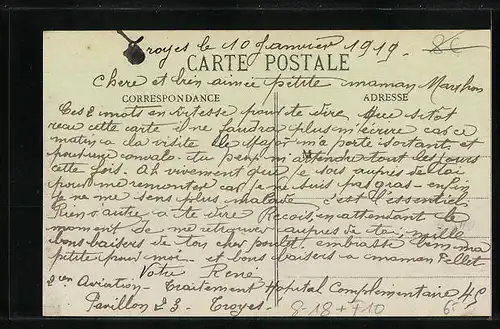 Troyes le 10 Janvier 1919.
8€
CARTE POSTALE
Chere et bien aimée petite maman Marthon
CORRESPONDANCE
ADRESSE
Ces 2 mots en vitesse pour te dire que sitôt
recu cette carte il ne faudra plus m'écrire car ce
matin a la visite le Major m'a porté sortant, et
pour une convalo. tu peux m'attendre tout les jours
cette fois. Ah vivement que je sois auprès de toi
pour me remonter car je ne suis pas gras - enfin
je ne me sens plus malade c'est l'essentiel
Rien d'autre a te dire Recois en attendant le
moment de me retrouver auprès de toi, mille
bons baisers de ton cher poulet. embrasse bien ma
ptite pour moi - et bons baisers a maman Pellet
Votre René
2em Aviation - Traitement Hopital Complémentaire 49
Pavillon 23 - Troyes.
8-18 + 710